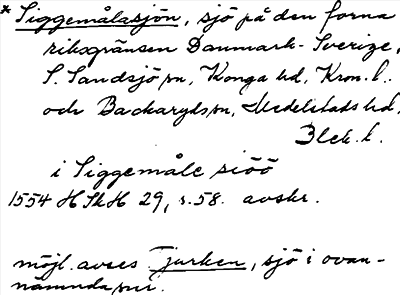 * Siggemålasjön, sjö på den forna
riksgränsen Danmark-Sverige,
S. Sandsjö sn, Konga hd, Kron. l.
och Backaryds sn, Medelstads hd,
Blek. l.
i Siggemåle siöö
1554 HSkH 29, s. 58. avskr.
möjl. avses Tjurken, sjö i ovan-
nämnda snr.